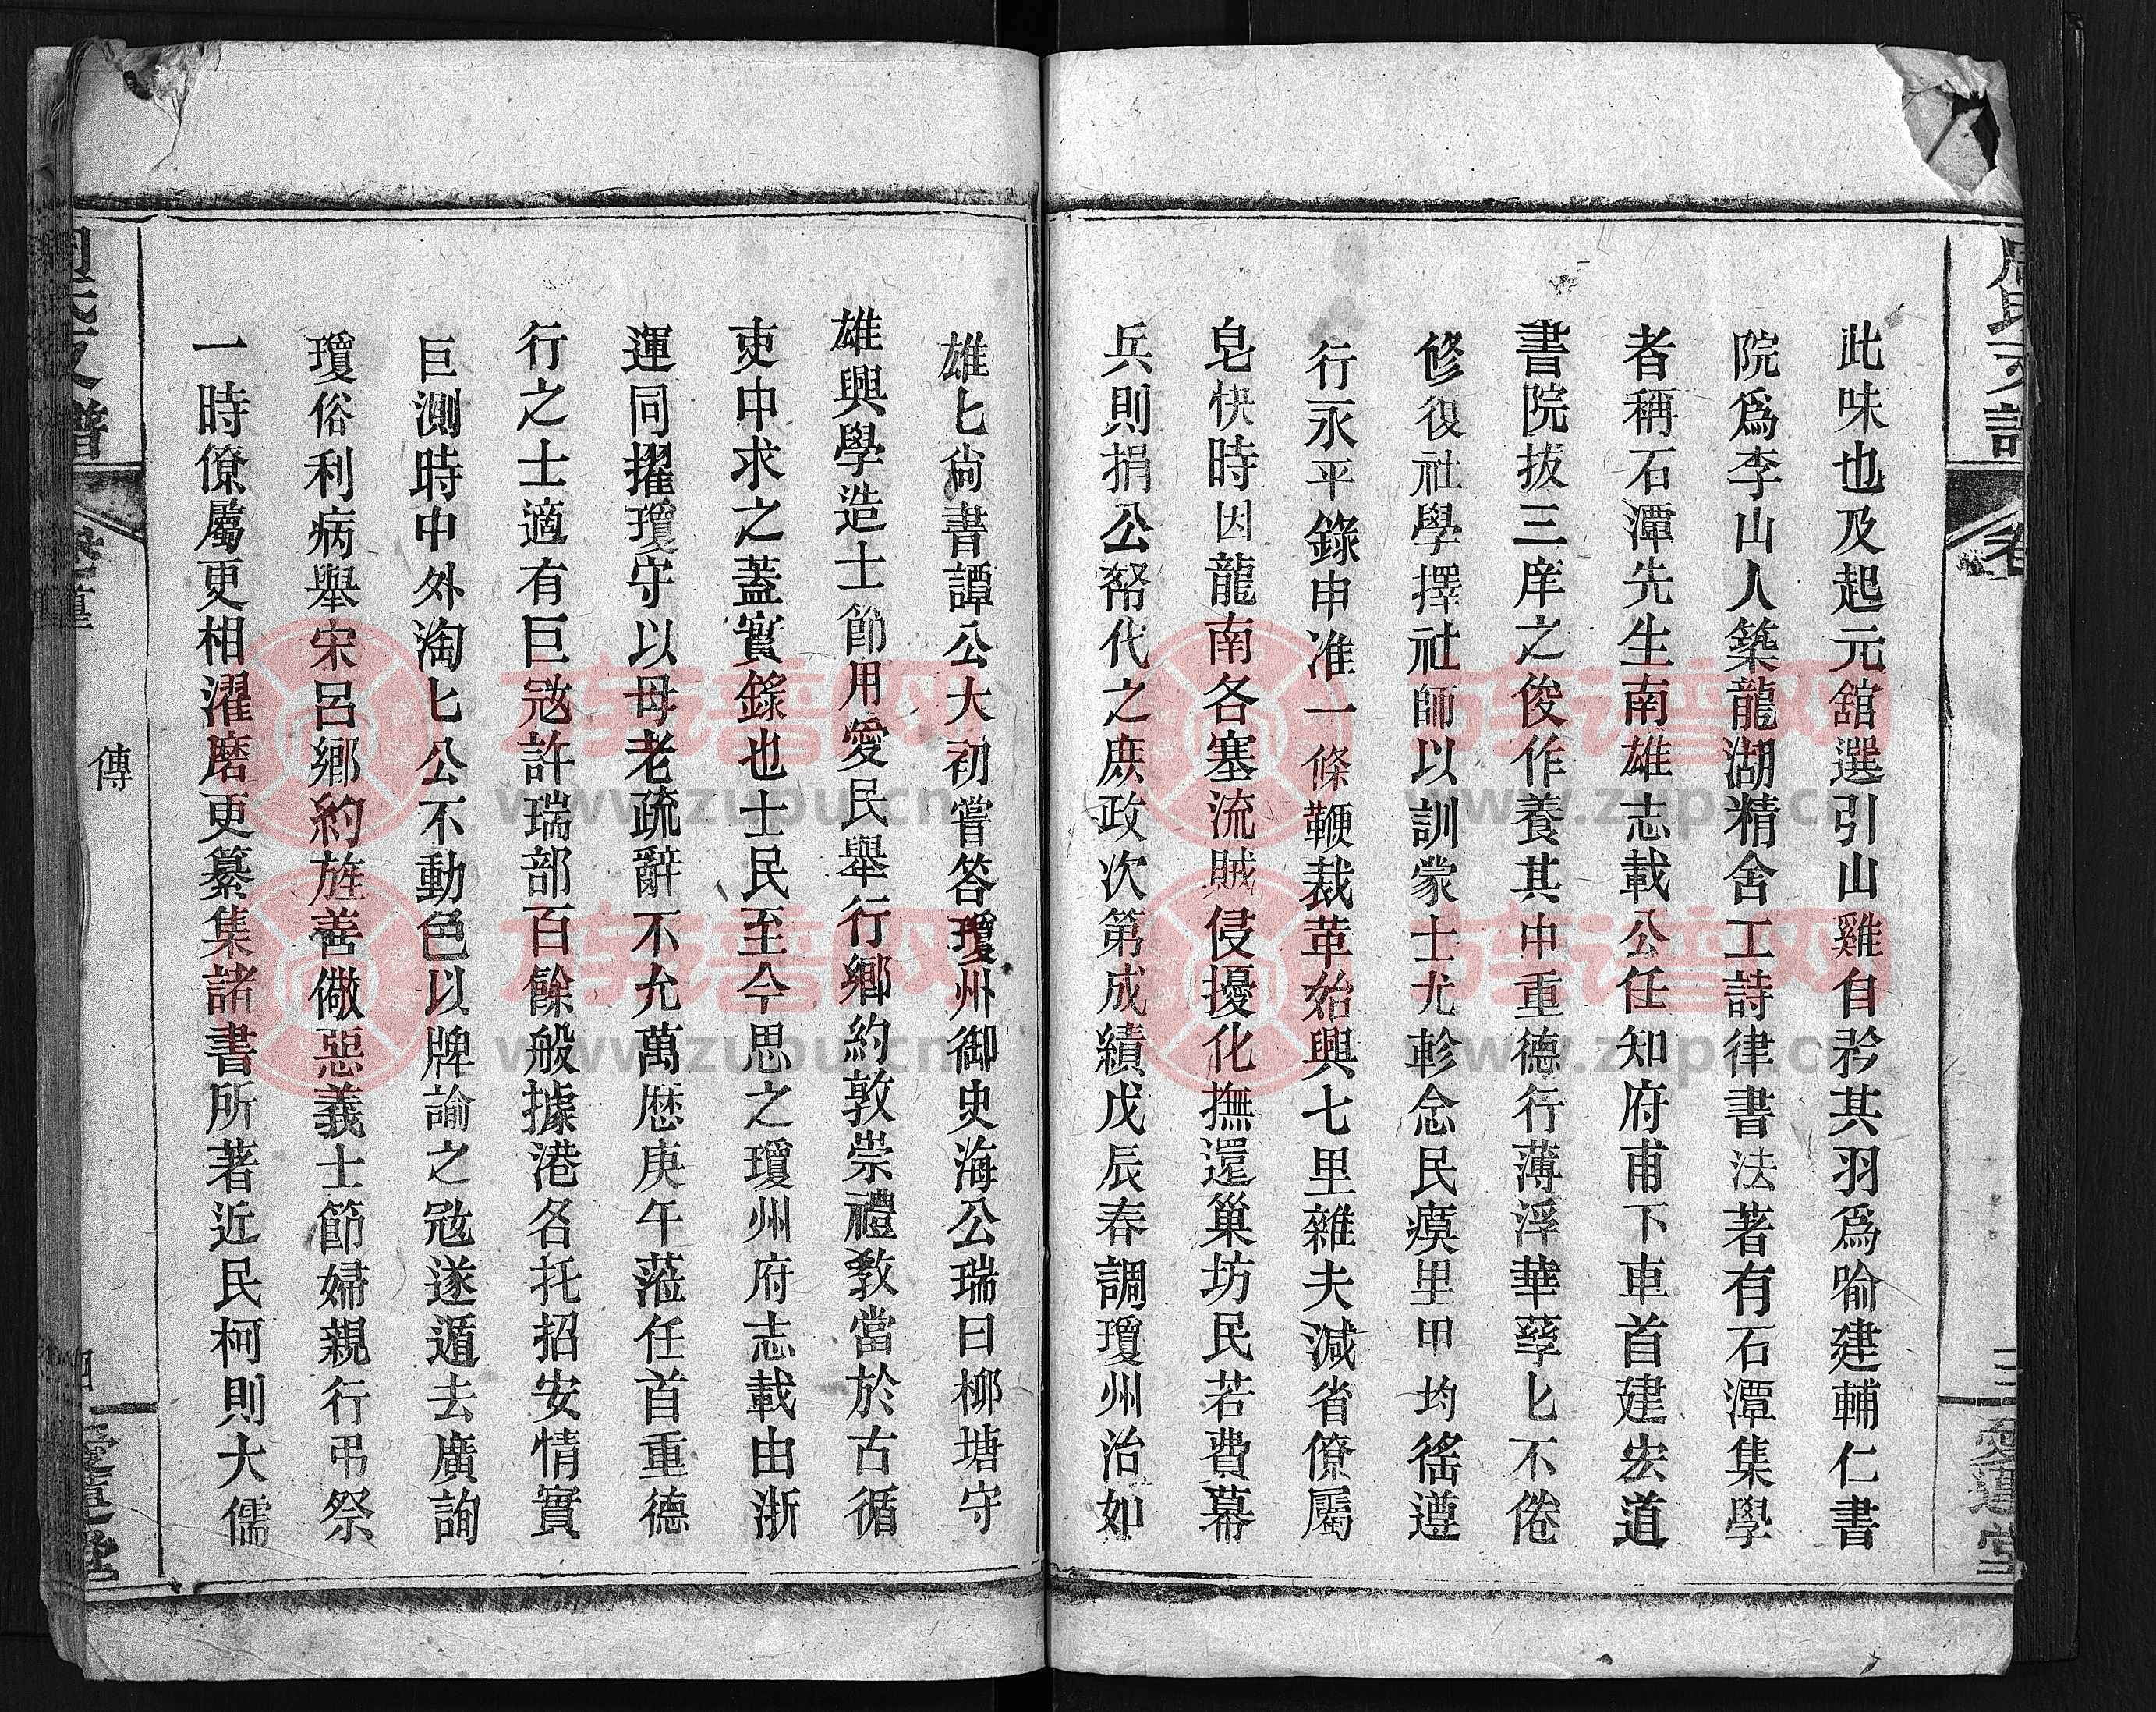 此味也及起元舘選引山雞自矜其羽爲喻建輔仁書
院爲李山人築龍湖精舍工詩律書法著有石潭集學
者稱石潭先生南雄志載公任知府甫下車首建宏道
書院拔三庠之俊作養其中重德行薄浮華孳匕不倦
修復社學擇社師以訓蒙士尤軫念民瘼里甲均徭遵
行永平錄申准一條鞭裁革始興七里雜夫減省僚屬
皂快時因龍南各塞流賊侵擾化撫還巢坊民若費幕
兵則捐公帑代之庶政次第成績戊辰春調瓊州治如
雄匕尙書譚公大初嘗答瓊州御史海公瑞曰柳塘守
雄興學造士節用愛民舉行鄉約敦崇禮教當於古循
吏中求之蓋實錄也士民至今思之瓊州府志載由浙
運同擢瓊守以母老疏辭不允萬歷庚午蒞任首重德
行之士適有巨寇許瑞部百餘般據港名托招安情實
巨測時中外淘匕公不動色以牌諭之寇遂遁去廣詢
瓊俗利病舉宋呂鄉約旌善儆惡義士節婦親行弔祭
一時僚屬更相濯磨更纂集諸書所著近民柯則大儒
傳
周氏支譜
卷
三
愛蓮堂
四
愛蓮堂
族谱网
www.zupu.cn
族谱网
www.zupu.cn
族谱网
www.zupu.cn
族谱网
www.zupu.cn